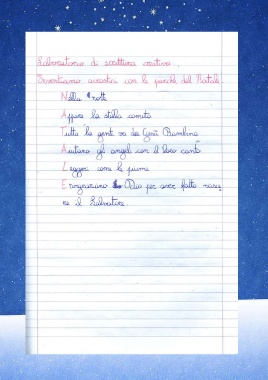 Laboratorio di scrittura creativa.
Inventiamo acrostici con le parole del Natale.
Nella notte
Appare la stella cometa
Tutta la gente va da Gesù Bambino
Aiutano gli angeli con il loro canto
Leggeri come le piume
E ringraziano Dio per aver fatto nasce
re il Salvatore.